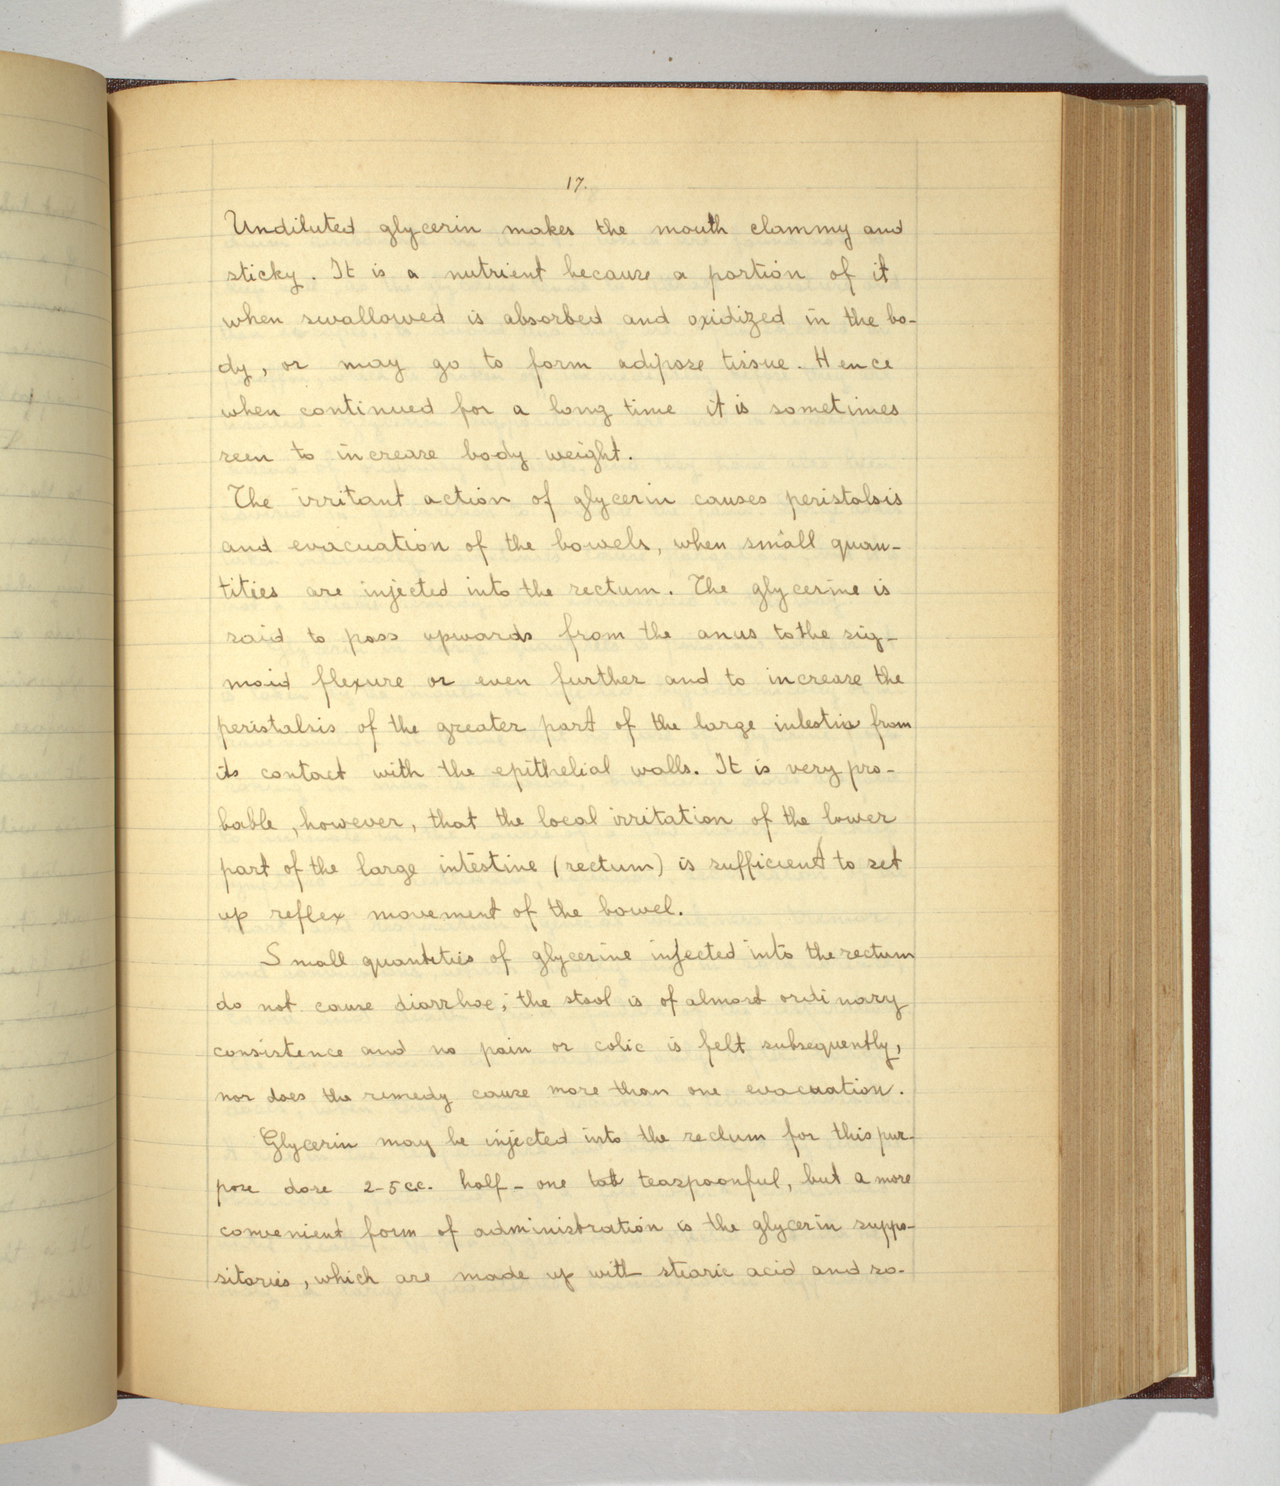 17.
Undiluted glycerin makes the mouth clammy and
sticky. It is a nutrient because a portion of it
when swallowed is absorbed and oxidized in the bo-
dy, or may go to form adipose tissue. Hence
when continued for a long time it is sometimes
seen to increase body weight.
The irritant action of glycerin causes peristalsis
and evacuation of the bowels, when small quan-
tities are injected into the rectum. The glycerine is
said to pass upwards from the anus to the sig-
moid flexure or even further and to increase the
peristalsis of the greater part of the large intestin from
its contact with the epithelial walls. It is very pro-
bable, however, that the local irritation of the lower
part of the large intestine (rectum) is sufficient to set
up reflex movement of the bowel.
Small quantities of glycerine injected into the rectum
do not cause diarrhoe; the stool is of almost ordinary
consistence and no pain or colic is felt subsequently,
nor does the remedy cause more than one evacuation.
Glycerin may be injected into the rectum for this pur-
pose dose 2-5 c.c. half - one teaspoonful, but a more
convenient form of administration is the glycerin suppo-
sitories, which are made up with stearic acid and so-